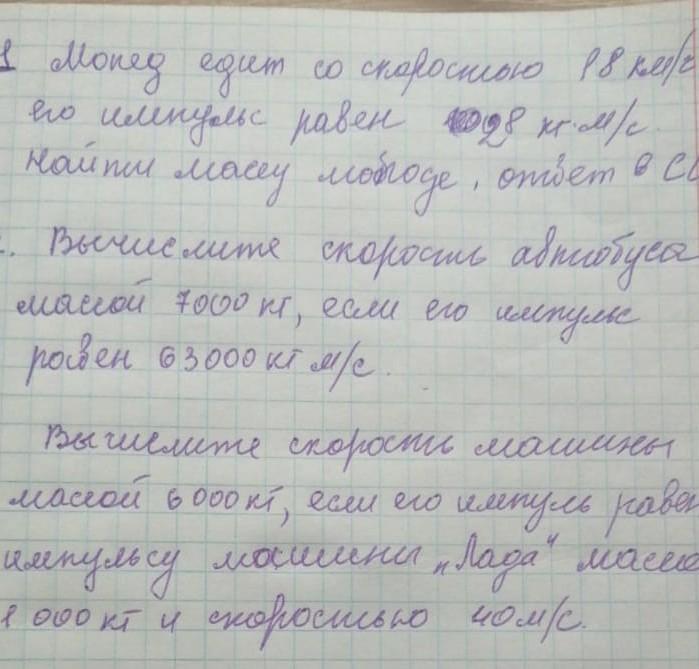 1 Мопед едит со скоростью 18 км/ч
его импульс равен 98 кг·м/с.
Найти массу , ответ в СИ
. Вычислите скорость автобуса
массой 7000 кг, если его импульс
равен 63000 кг м/с.
Вычислите скорость машины
массой 6000 кг, если его импуль равен
импульсу машины „Лада" масса
1000 кг и скоростью 40 м/с.